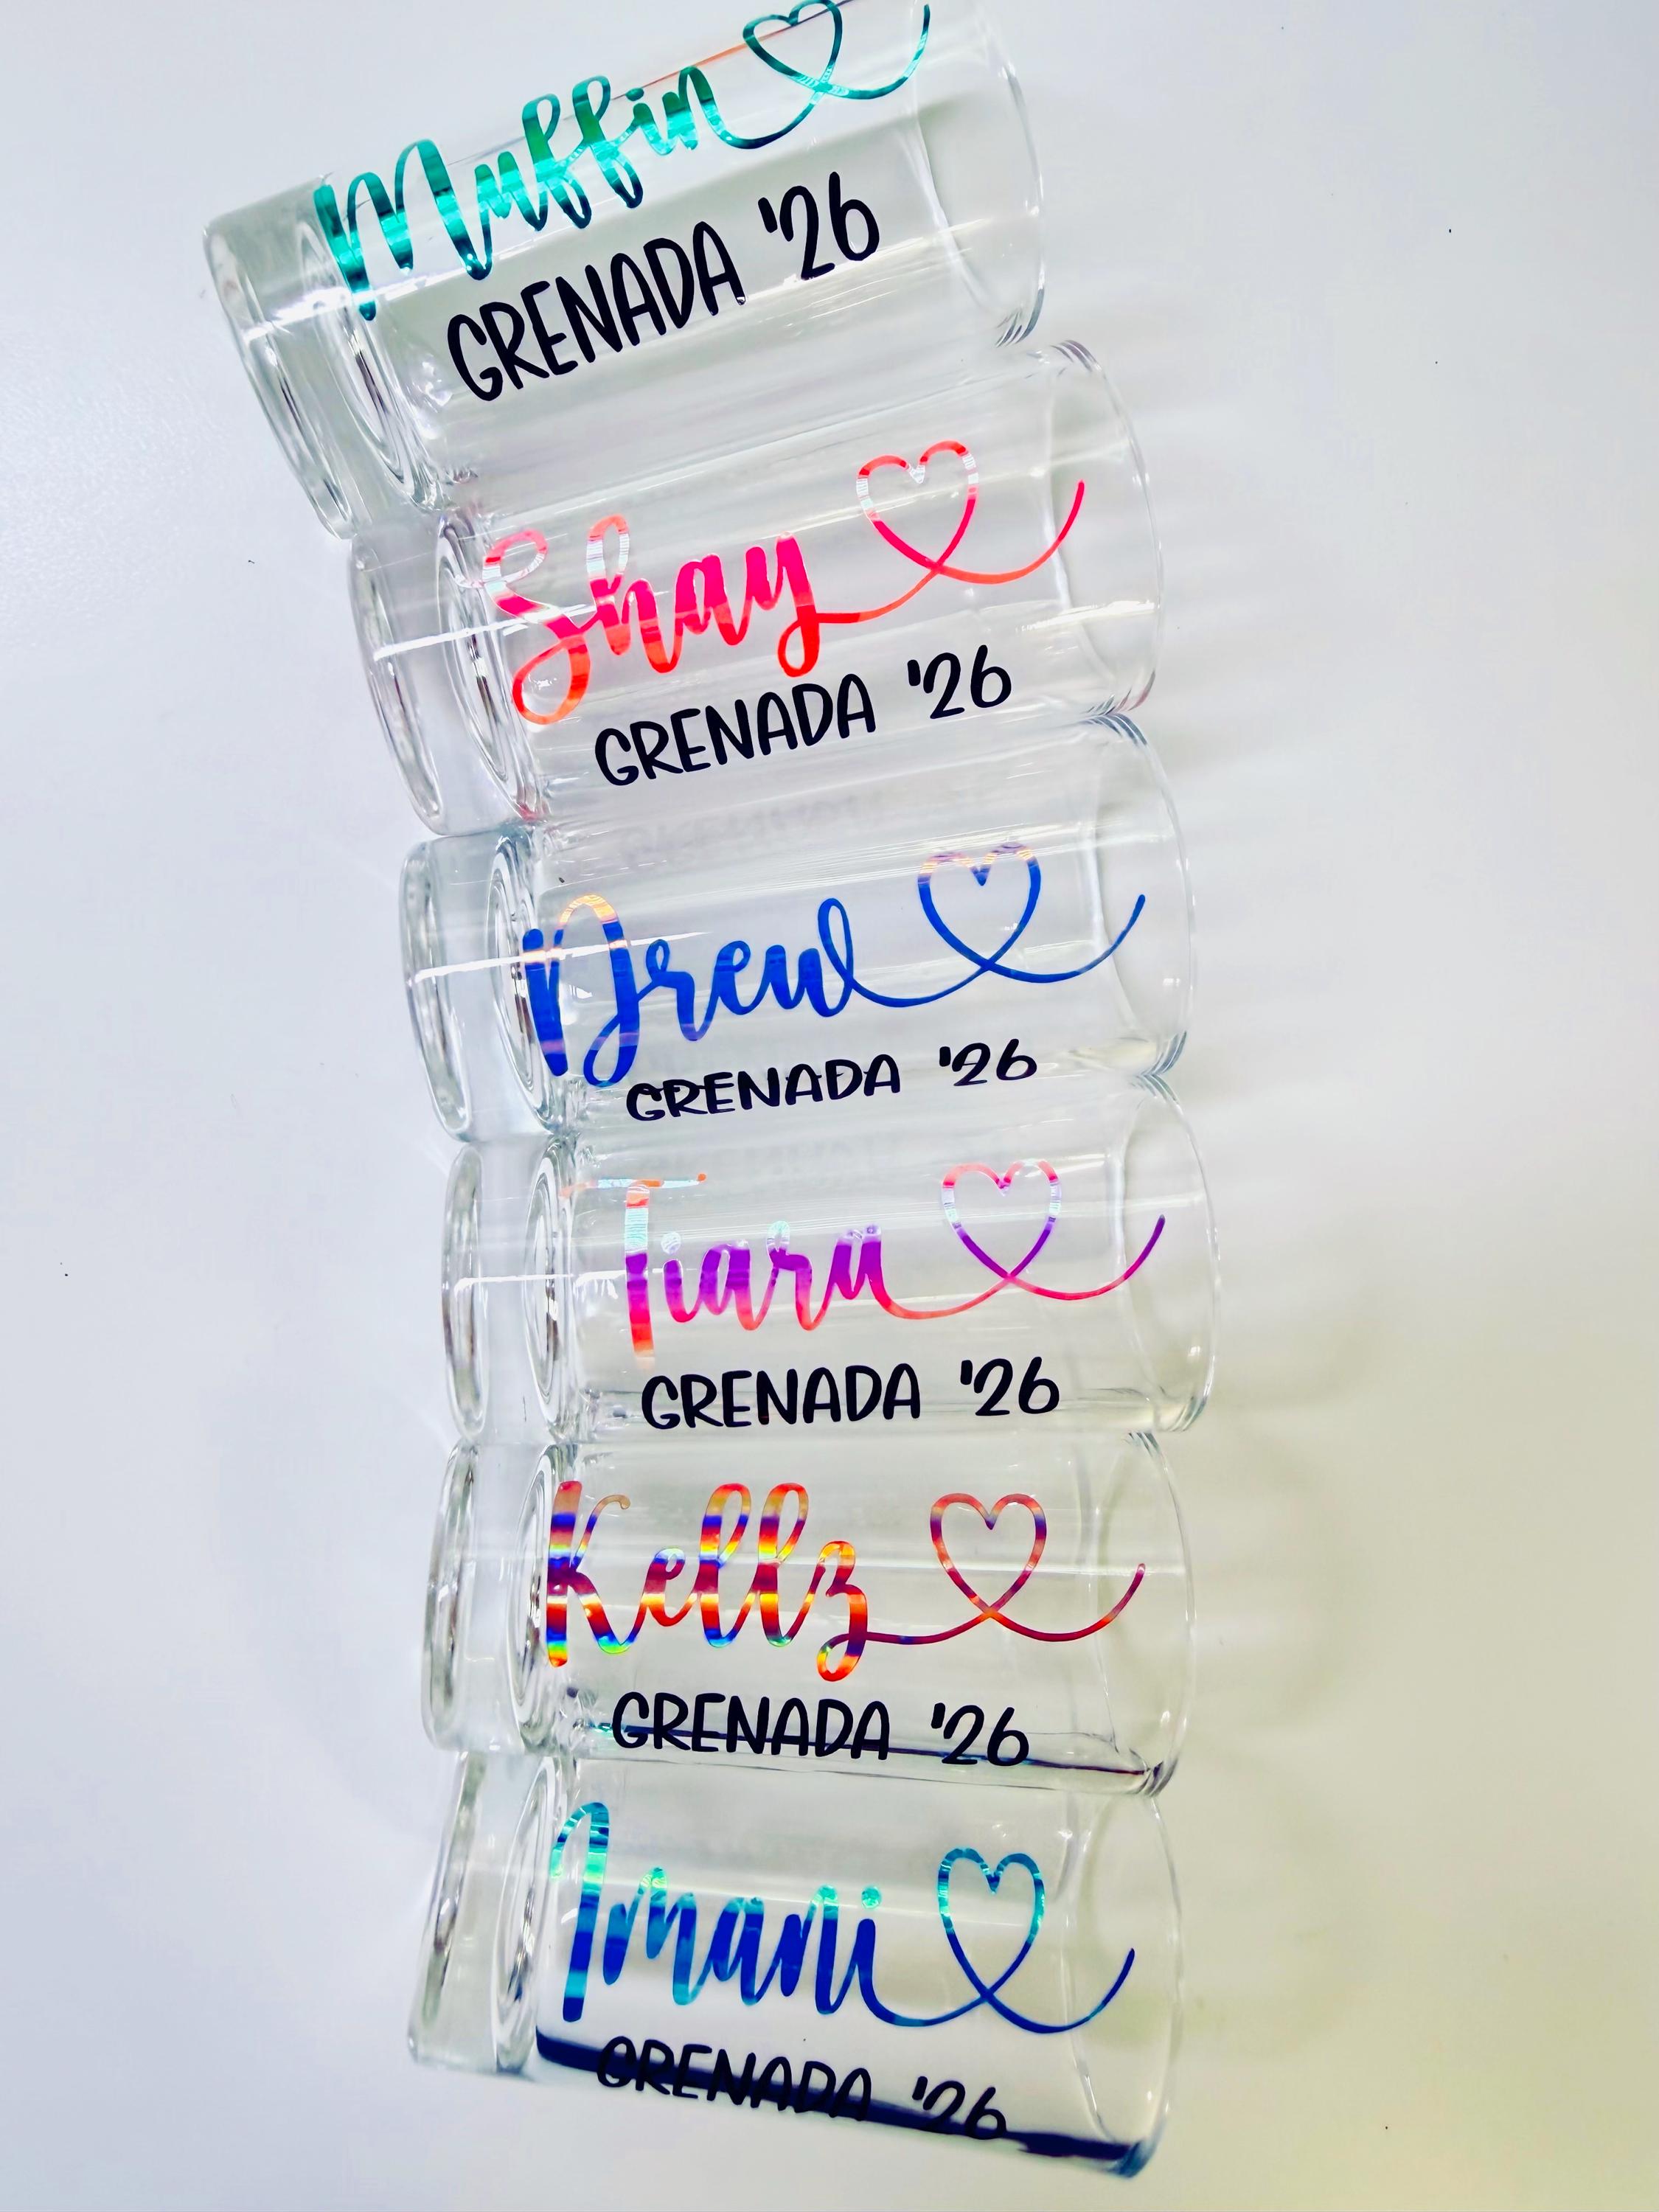 Muffin
GRENADA '26
Shay
GRENADA '26
Drew
GRENADA '26
Tiara
GRENADA '26
Kellz
GRENADA '26
Imani
GRENADA '26